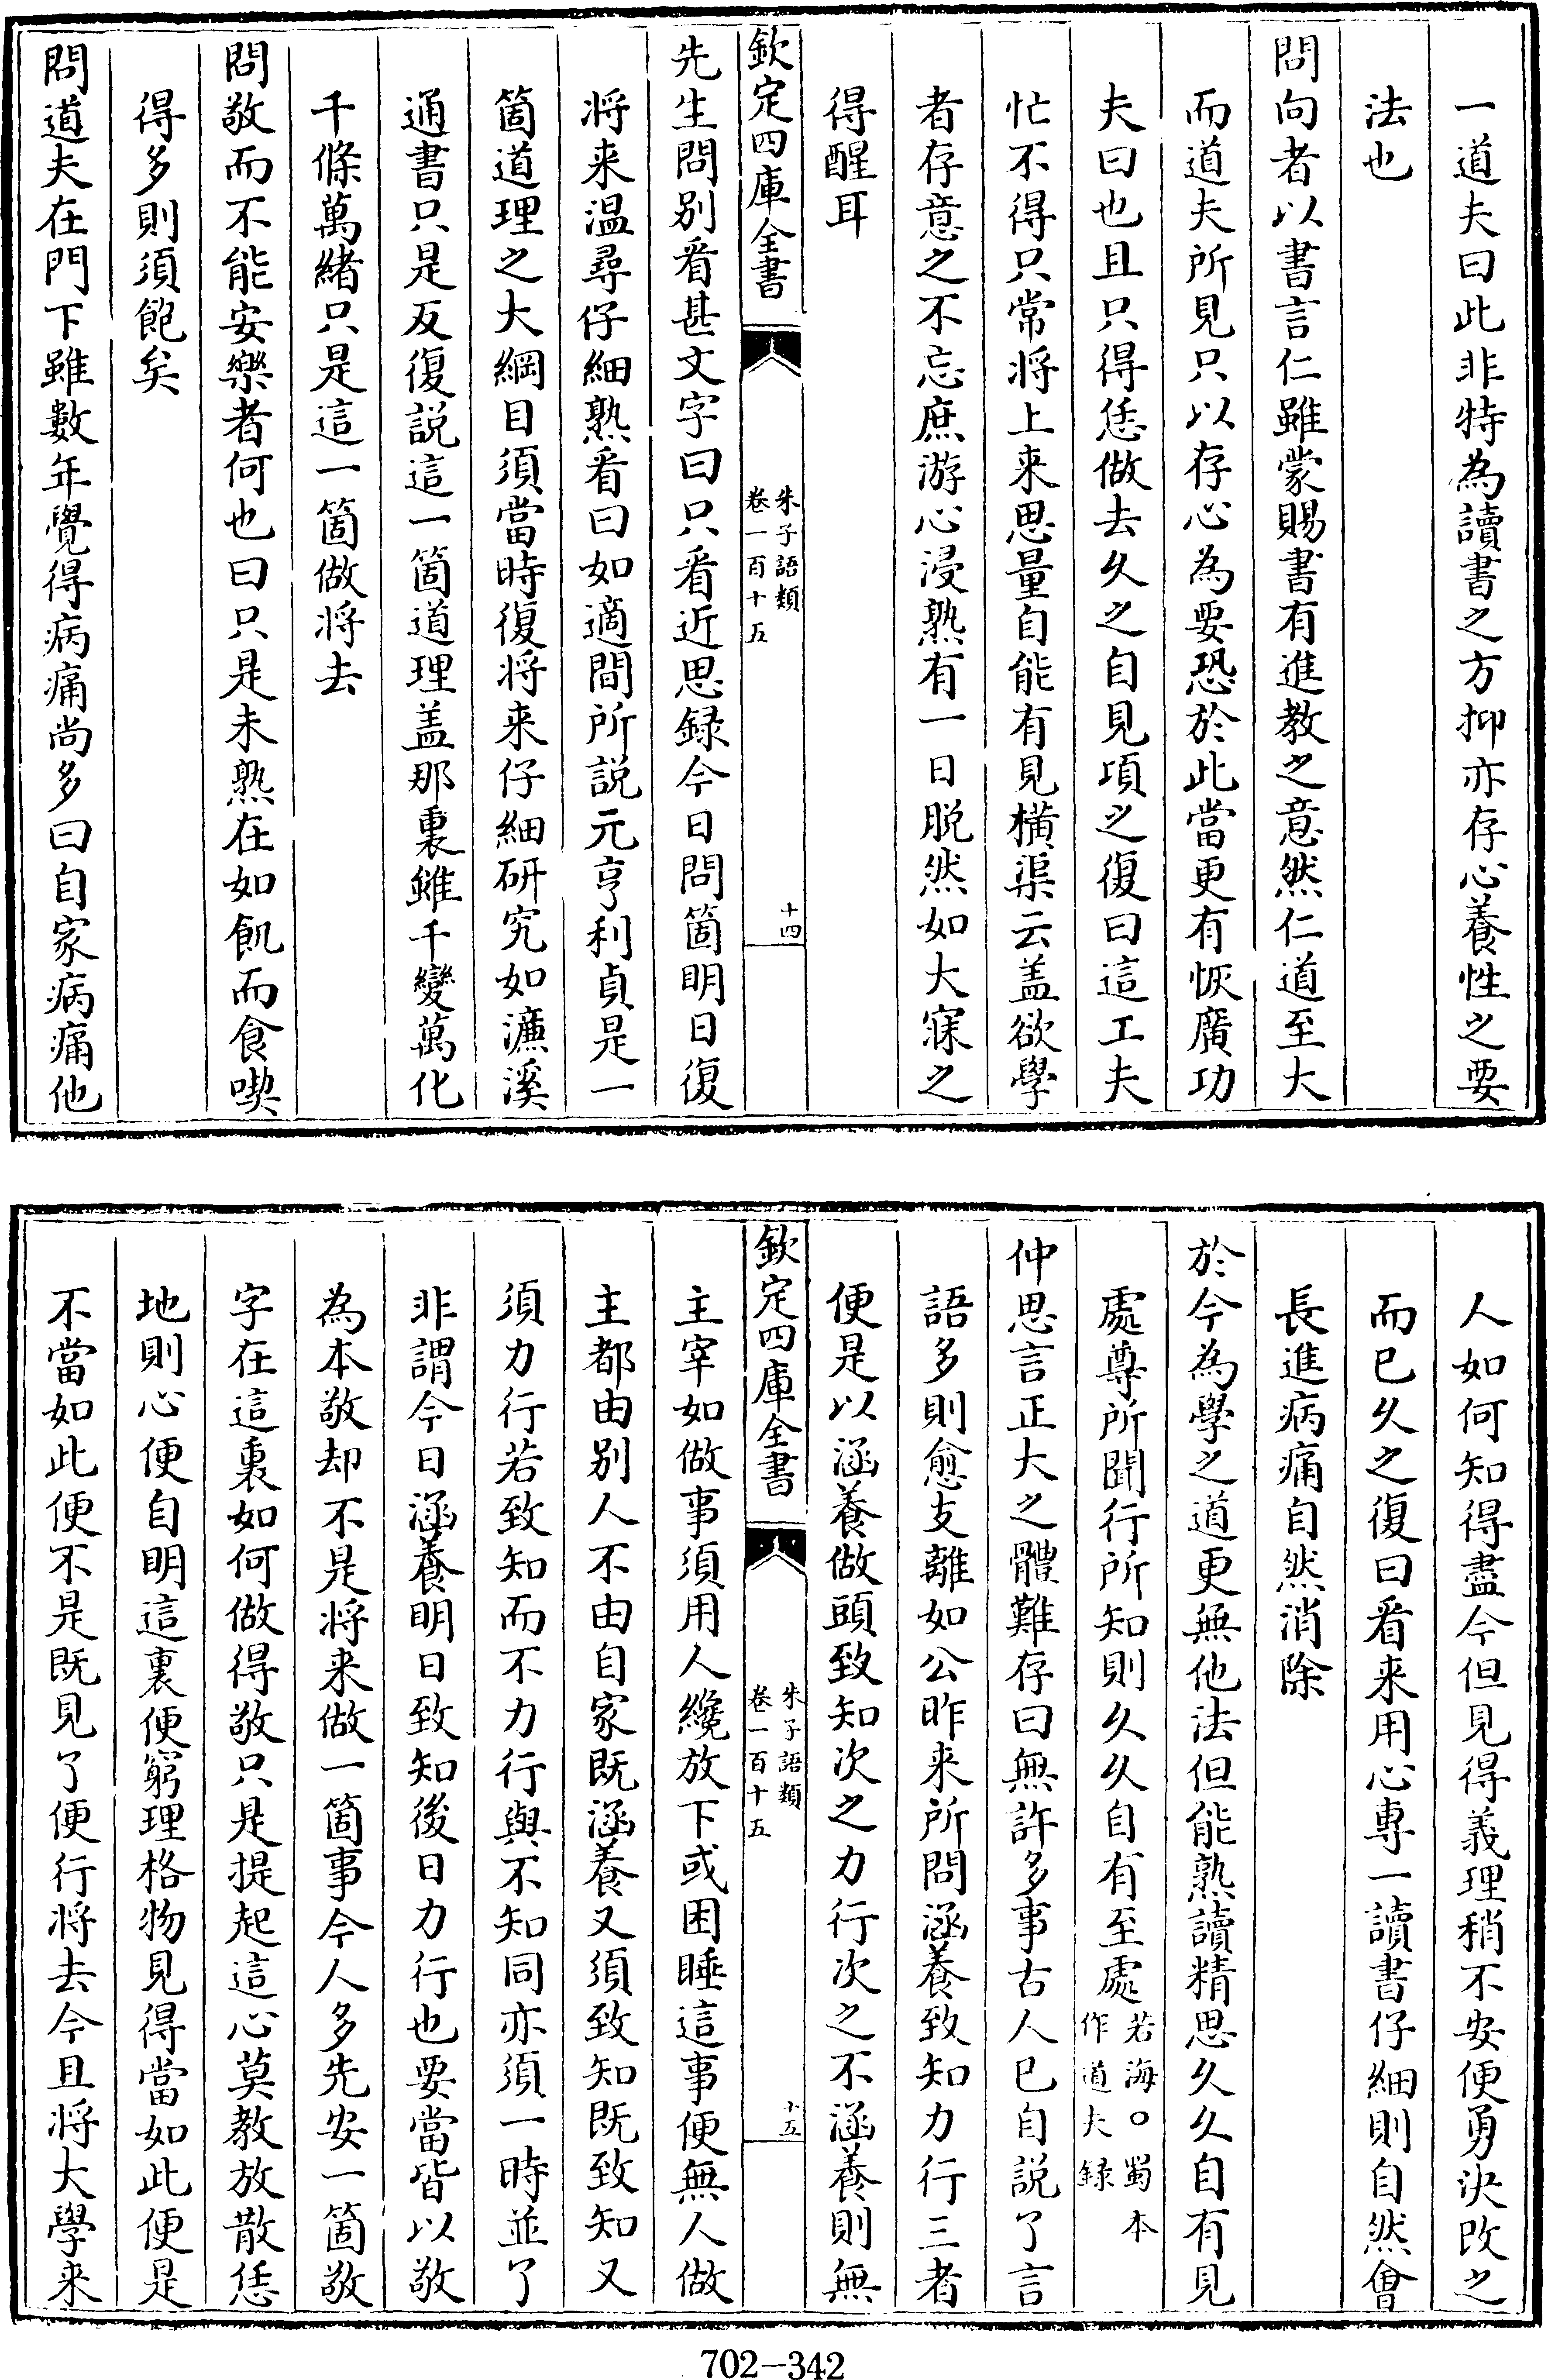 一道夫曰此非特為讀書之方抑亦存心養性之要
法也
問向者以書言仁雖蒙賜書有進教之意然仁道至大
而道夫所見只以存心為要恐於此當更有恢廣功
夫曰也且只得恁做去久之自見頃之復曰這工夫
忙不得只常將上来思量自能有見橫渠云盖欲學
者存意之不忘庶游心浸熟有一日脱然如大寐之
得醒耳
欽定四庫全書
朱子語類
卷一百十五
十四
先生問别看甚文字曰只看近思録今日問箇明日復
將来温尋仔細熟看曰如適間所説元亨利貞是一
箇道理之大綱目須當時復將来仔細研究如濂溪
通書只是反復説這一箇道理盖那裏雖千變萬化
千條萬緒只是這一箇做將去
問敬而不能安樂者何也曰只是未熟在如飢而食喫
得多則須飽矣
問道夫在門下雖數年覺得病痛尚多曰自家病痛他
人如何知得盡今但見得義理稍不安便勇決改之
而已久之復曰看来用心專一讀書仔細則自然會
長進病痛自然消除
於今為學之道更無他法但能熟讀精思久久自有見
處尊所聞行所知則久久自有至處若海○蜀本
作道夫録
仲思言正大之體難存曰無許多事古人已自説了言
語多則愈支離如公昨来所問涵養致知力行三者
便是以涵養做頭致知次之力行次之不涵養則無
欽定四庫全書
朱子語類
卷一百十五
十五
主宰如做事須用人纔放下或困睡這事便無人做
主都由别人不由自家既涵養又須致知既致知又
須力行若致知而不力行與不知同亦須一時並了
非謂今日涵養明日致知後日力行也要當皆以敬
為本敬却不是將来做一箇事今人多先安一箇敬
字在這裏如何做得敬只是提起這心莫教放散恁
地則心便自明這裏便窮理格物見得當如此便是
不當如此便不是既見了便行將去今且將大學来
702-342